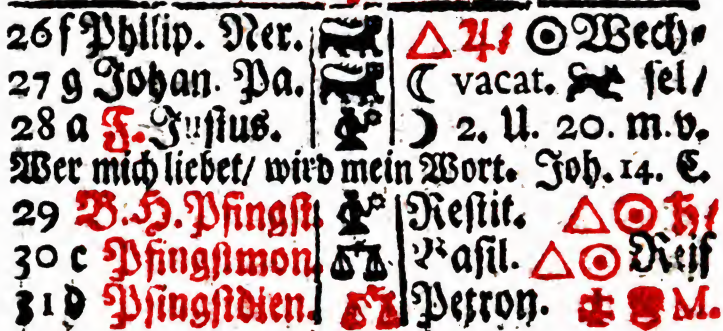 26 f Philip. Ner. △ ♃/ ☉ Wech-
27 g Johan. Pa. ☾ vacat. sel/
28 a F. Justus. ☽ 2. U. 20. m. v.
Wer mich liebet/ wird mein Wort. Joh. 14. C.
29 B. H. Pfingst. Restit. △ ☉ ♄/
30 c Pfingstmon. Basil. △ ☉ Reif
31 d Pfingstdien. Petron. M.